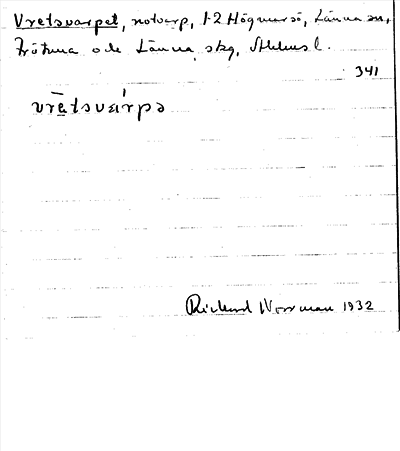 Vretsvarpet, notvarp, 1-2 Högmarsö, Länna sn,
Frötuna och Länna skg, Sthlms l.
341
vrētsvárpə
Rickard Norrman 1932